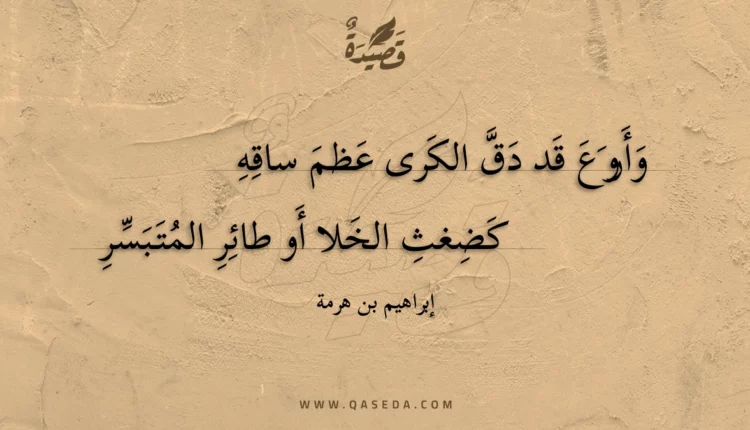 قَصِيْدَةٌ
وَأَروَعَ قَد دَقَّ الكَرى عَظمَ ساقِهِ
كَضِغثِ الخَلا أَو طائِرِ المُتَبَسِّرِ
إبراهيم بن هرمة
WWW.QASEDA.COM